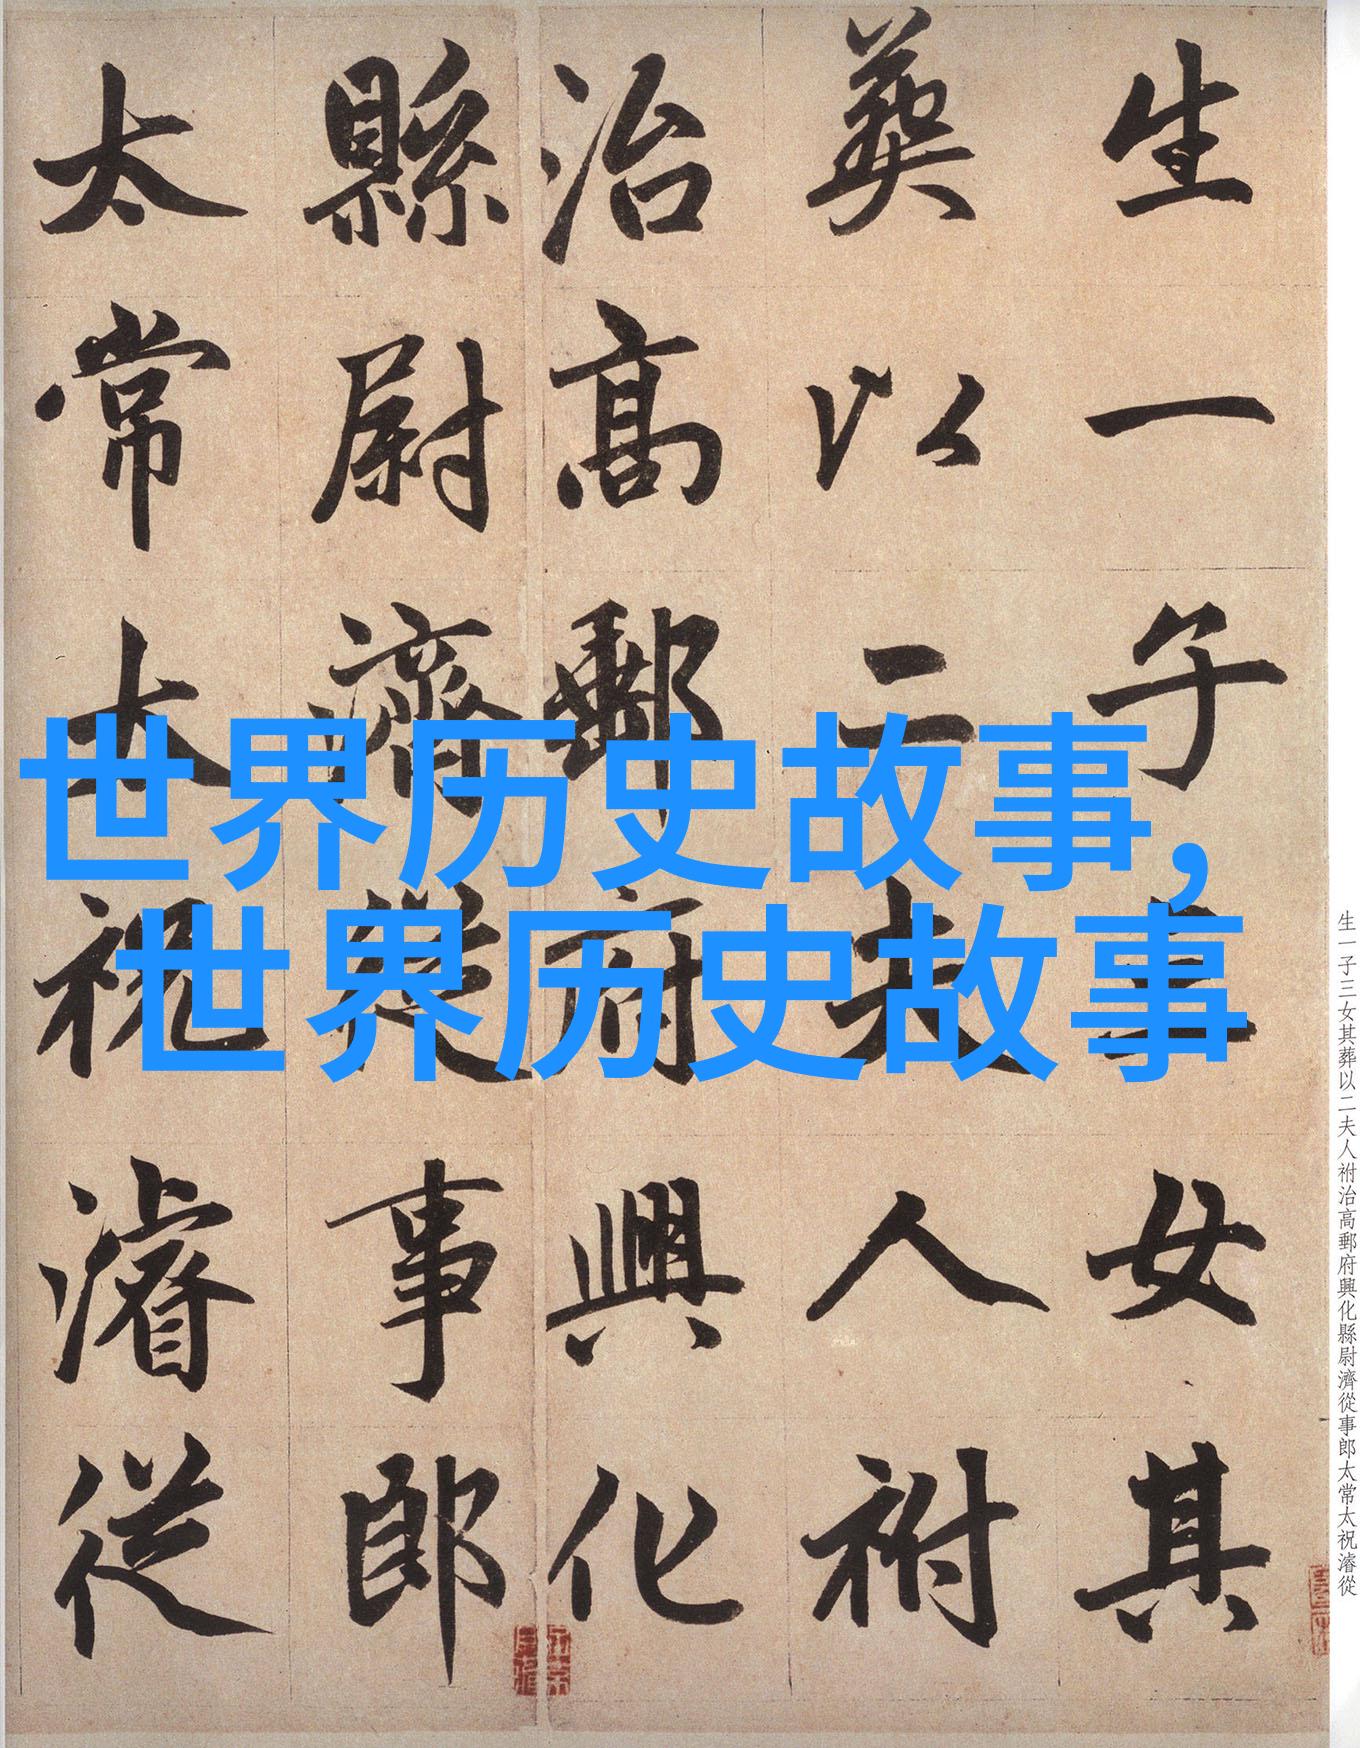 生一子三女其
葬以二夫人祔
治高郵府興化
縣尉濟從事郎
太常太祝濬從
世界历史故事,
世界历史故事
生一子三女其葬以二夫人祔治高郵府興化縣尉濟從事郎太常太祝濬從